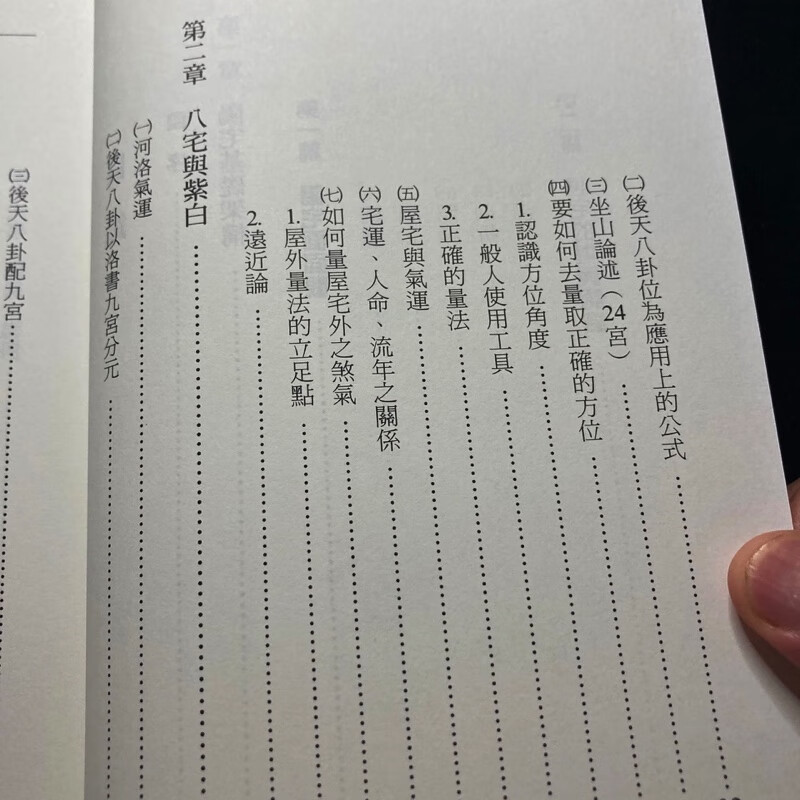 ㈡後天八卦位為應用上的公式
㈢坐山論述(24宮)
㈣要如何去量取正確的方位
1.認識方位角度
2.一般人使用工具
3.正確的量法
㈤屋宅與氣運
㈥宅運、人命、流年之關係
㈦如何量屋宅外之煞氣
1.屋外量法的立足點
2.遠近論
第二章 八宅與紫白
㈠河洛氣運
㈡後天八卦以洛書九宮分元
㈢後天八卦配九宮